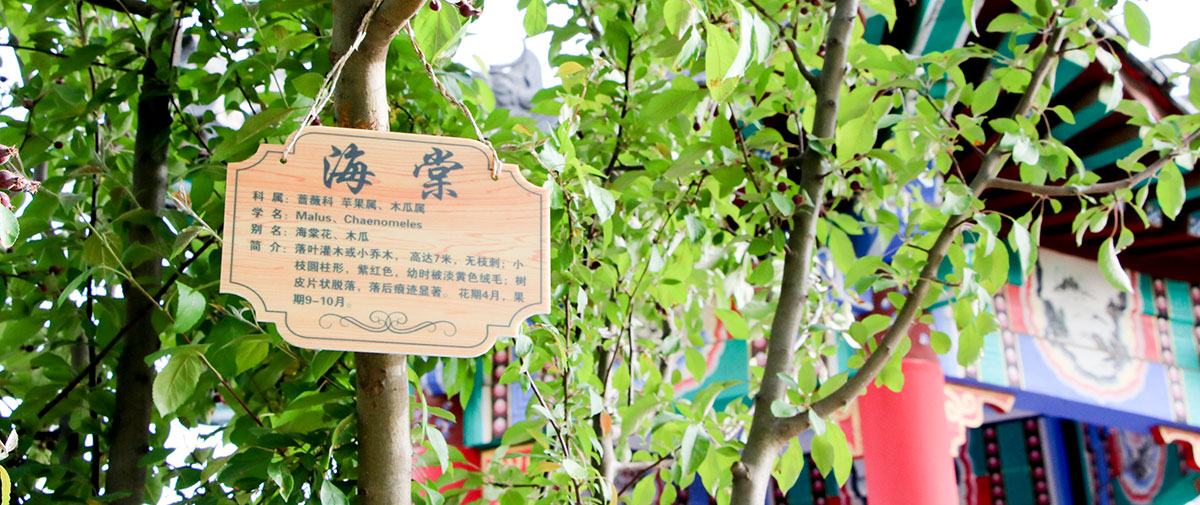 海棠
科 属：蔷薇科 苹果属、木瓜属
学 名：Malus、Chaenomeles
别 名：海棠花、木瓜
简 介：落叶灌木或小乔木， 高达7米，无枝刺；小
枝圆柱形，紫红色，幼时被淡黄色绒毛；树
皮片状脱落，落后痕迹显著。 花期4月，果
期9-10月。